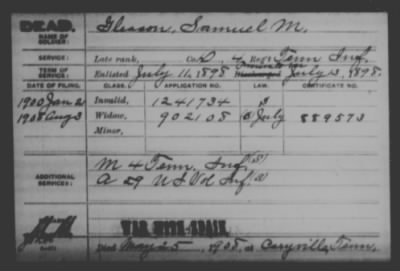 DEAD.
Gleason, Samuel M.
NAME OF SOLDIER:
SERVICE: Late rank, Co. D, 4 Reg't Tenn Inf.
TERM OF SERVICE: Enlisted July 11, 1898 Discharged July 13, 1898.
DATE OF FILING. CLASS. APPLICATION NO. LAW. CERTIFICATE NO.
1900 Jan 2 Invalid, 1241734
1908 Aug 3 Widow, 902108 July 889573
Minor,
ADDITIONAL SERVICES: M 4 Tenn. Inf.
A 29 U S Vol Inf.
WAR WITH SPAIN
Died May 25, 1908, at Caryville, Tenn.